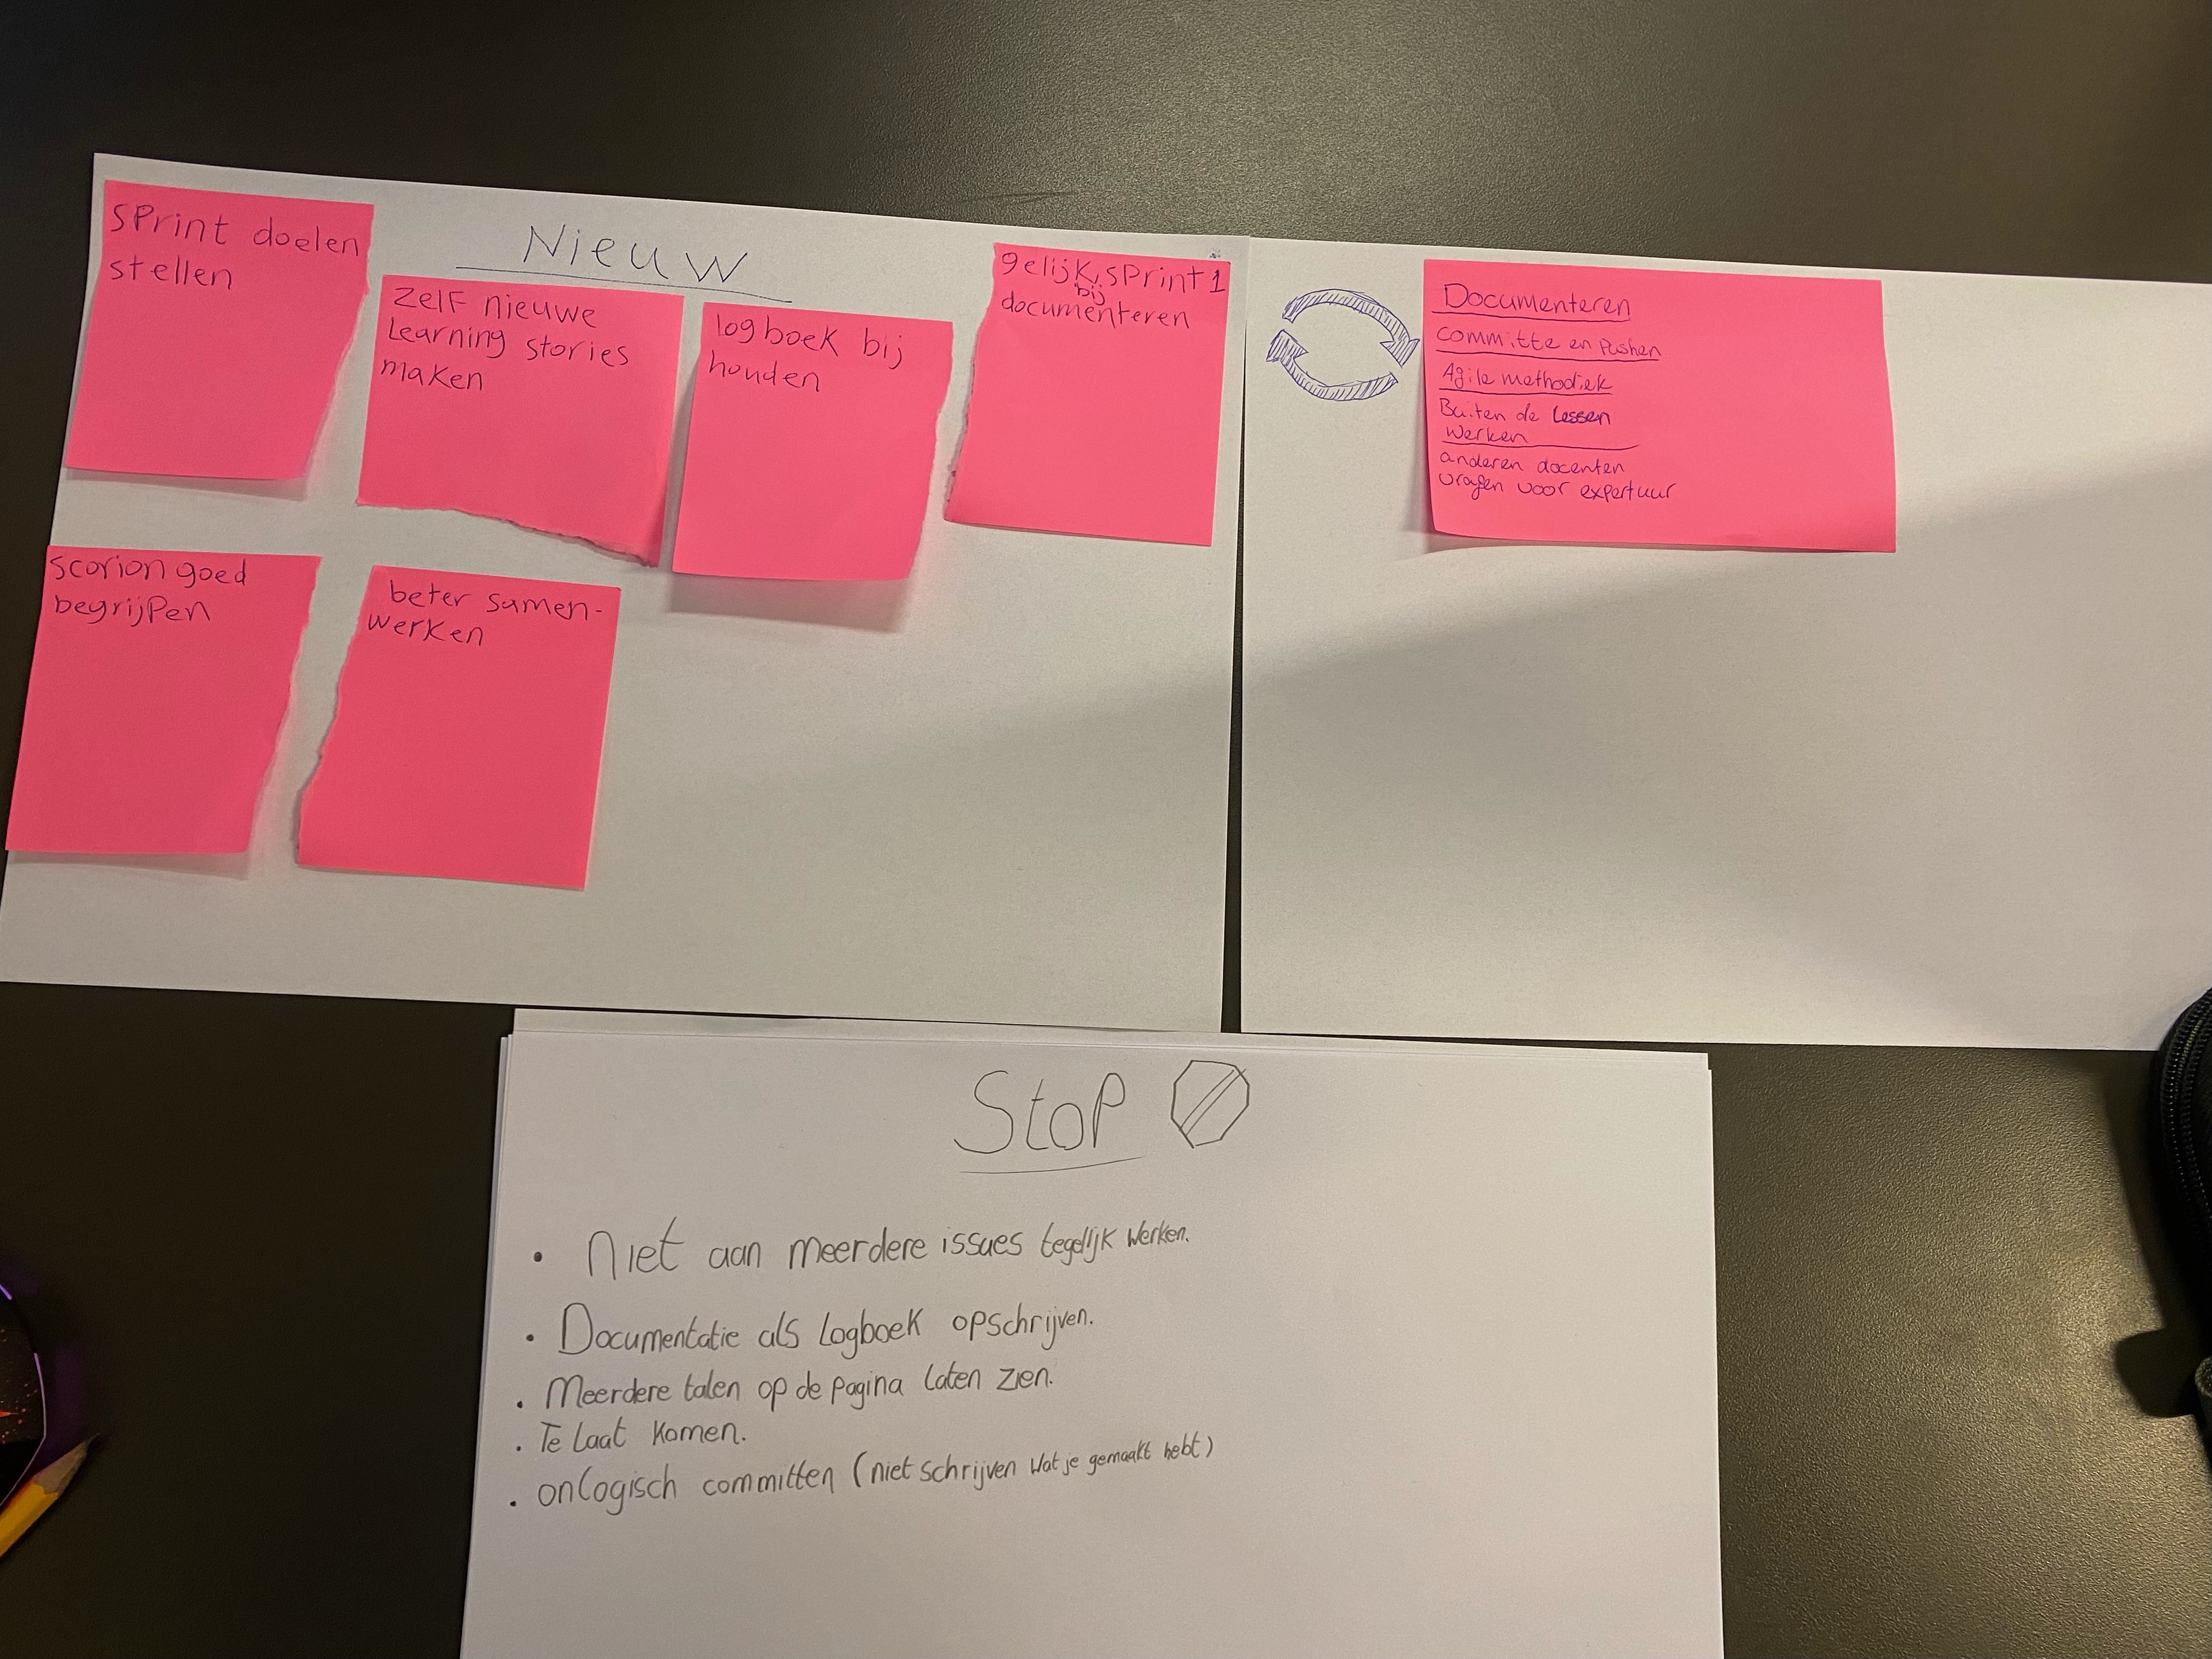 Nieuw
sprint doelen
stellen
zelf nieuwe
Learning stories
maken
logboek bij
houden
gelijk, sprint 1
bij
documenteren
scorion goed
begrijpen
beter samen-
werken
Documenteren
committe en pushen
Agile methodiek
Buiten de Lessen
werken
anderen docenten
vragen voor expertuur
Stop
• Niet aan meerdere issues tegelijk werken.
• Documentatie als logboek opschrijven.
• Meerdere talen op de pagina laten zien.
• Te laat komen.
• onlogisch committen (niet schrijven wat je gemaakt hebt)